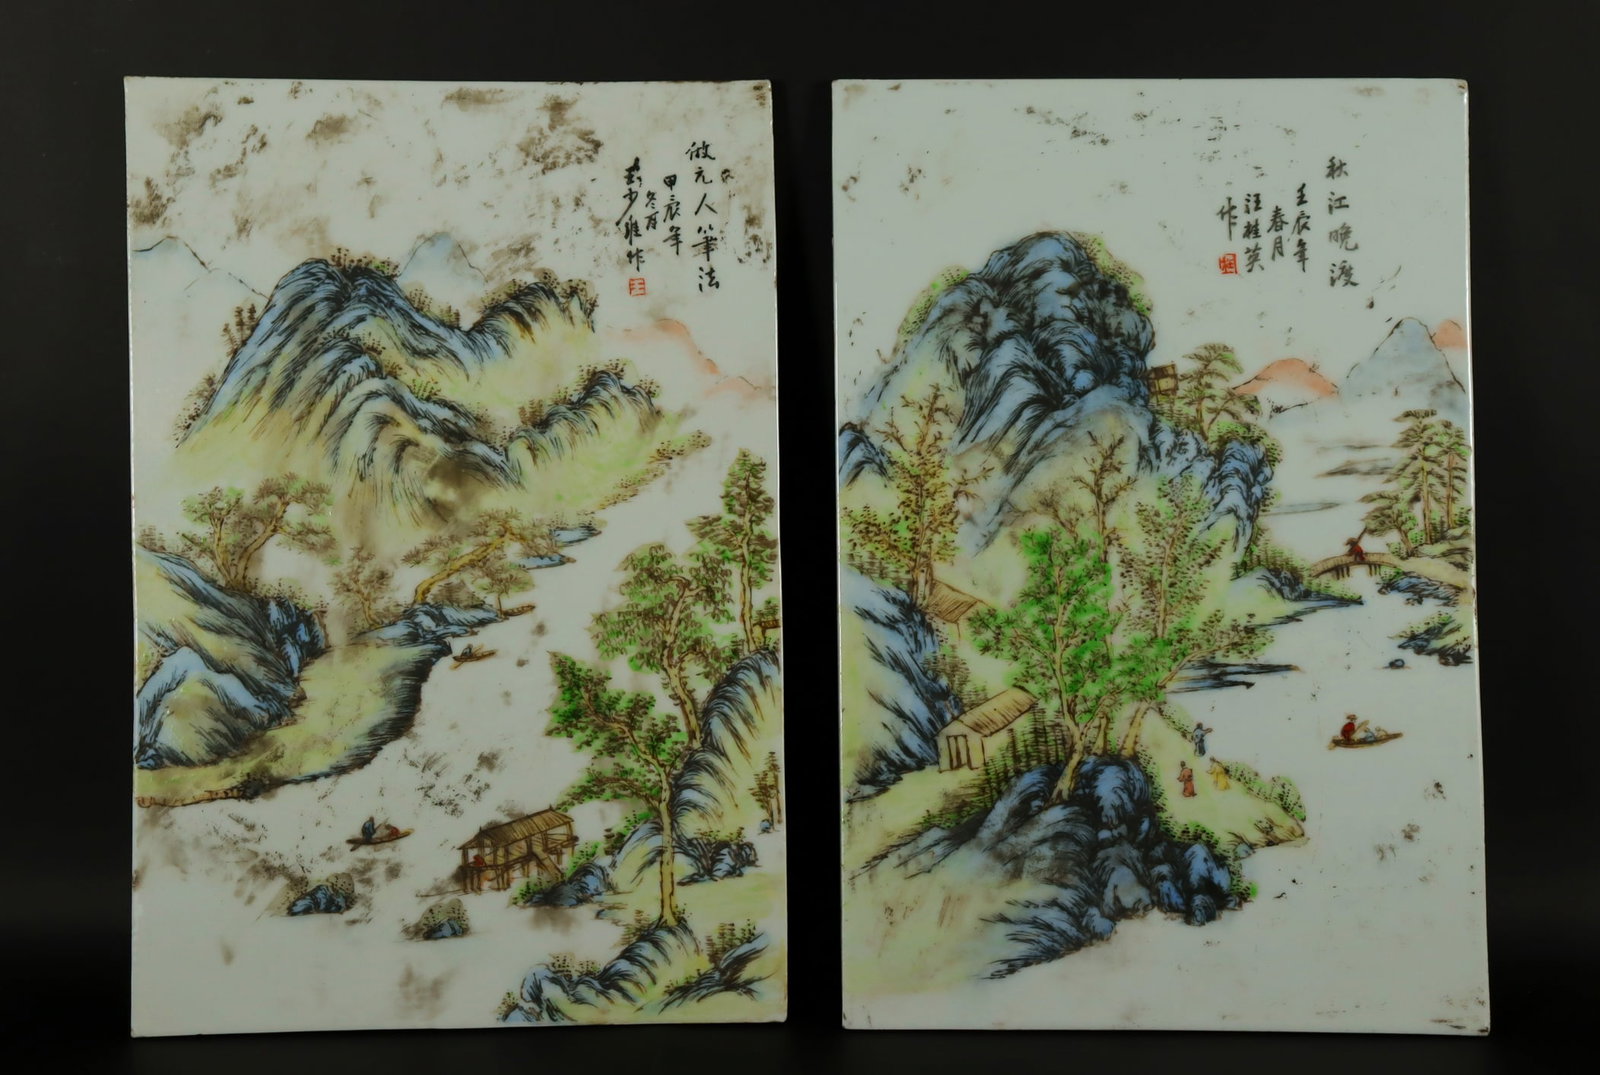 倣元人筆法
甲辰年
冬月
少維作
王
秋江晚渡
壬辰年
春月
汪桂英
作